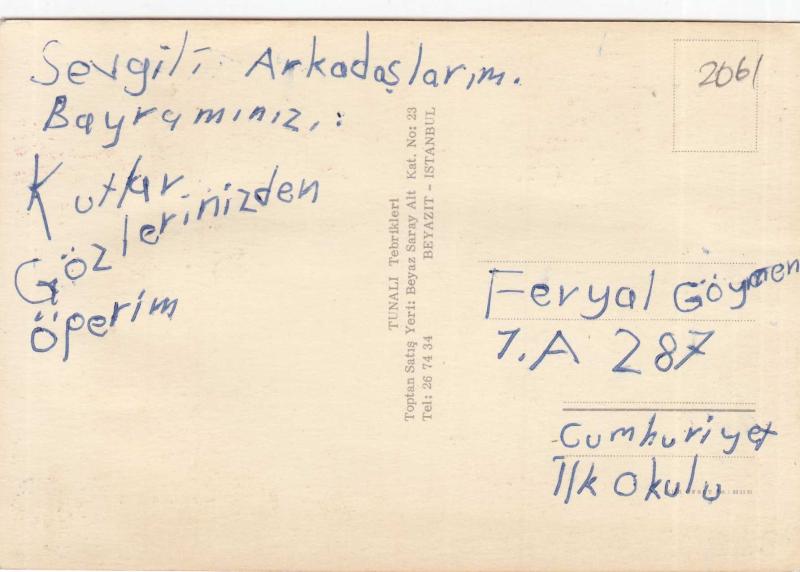 Sevgili Arkadaşlarım.
Bayramınızı:
Kutlar
Gözlerinizden
Öperim
TUNALI Tebrikleri
Toptan Satış Yeri: Beyaz Saray Alt Kat. No: 23
Tel: 26 74 34 BEYAZIT - ISTANBUL
2061
Feryal Göymen
1.A 287
Cumhuriyet
İlk Okulu